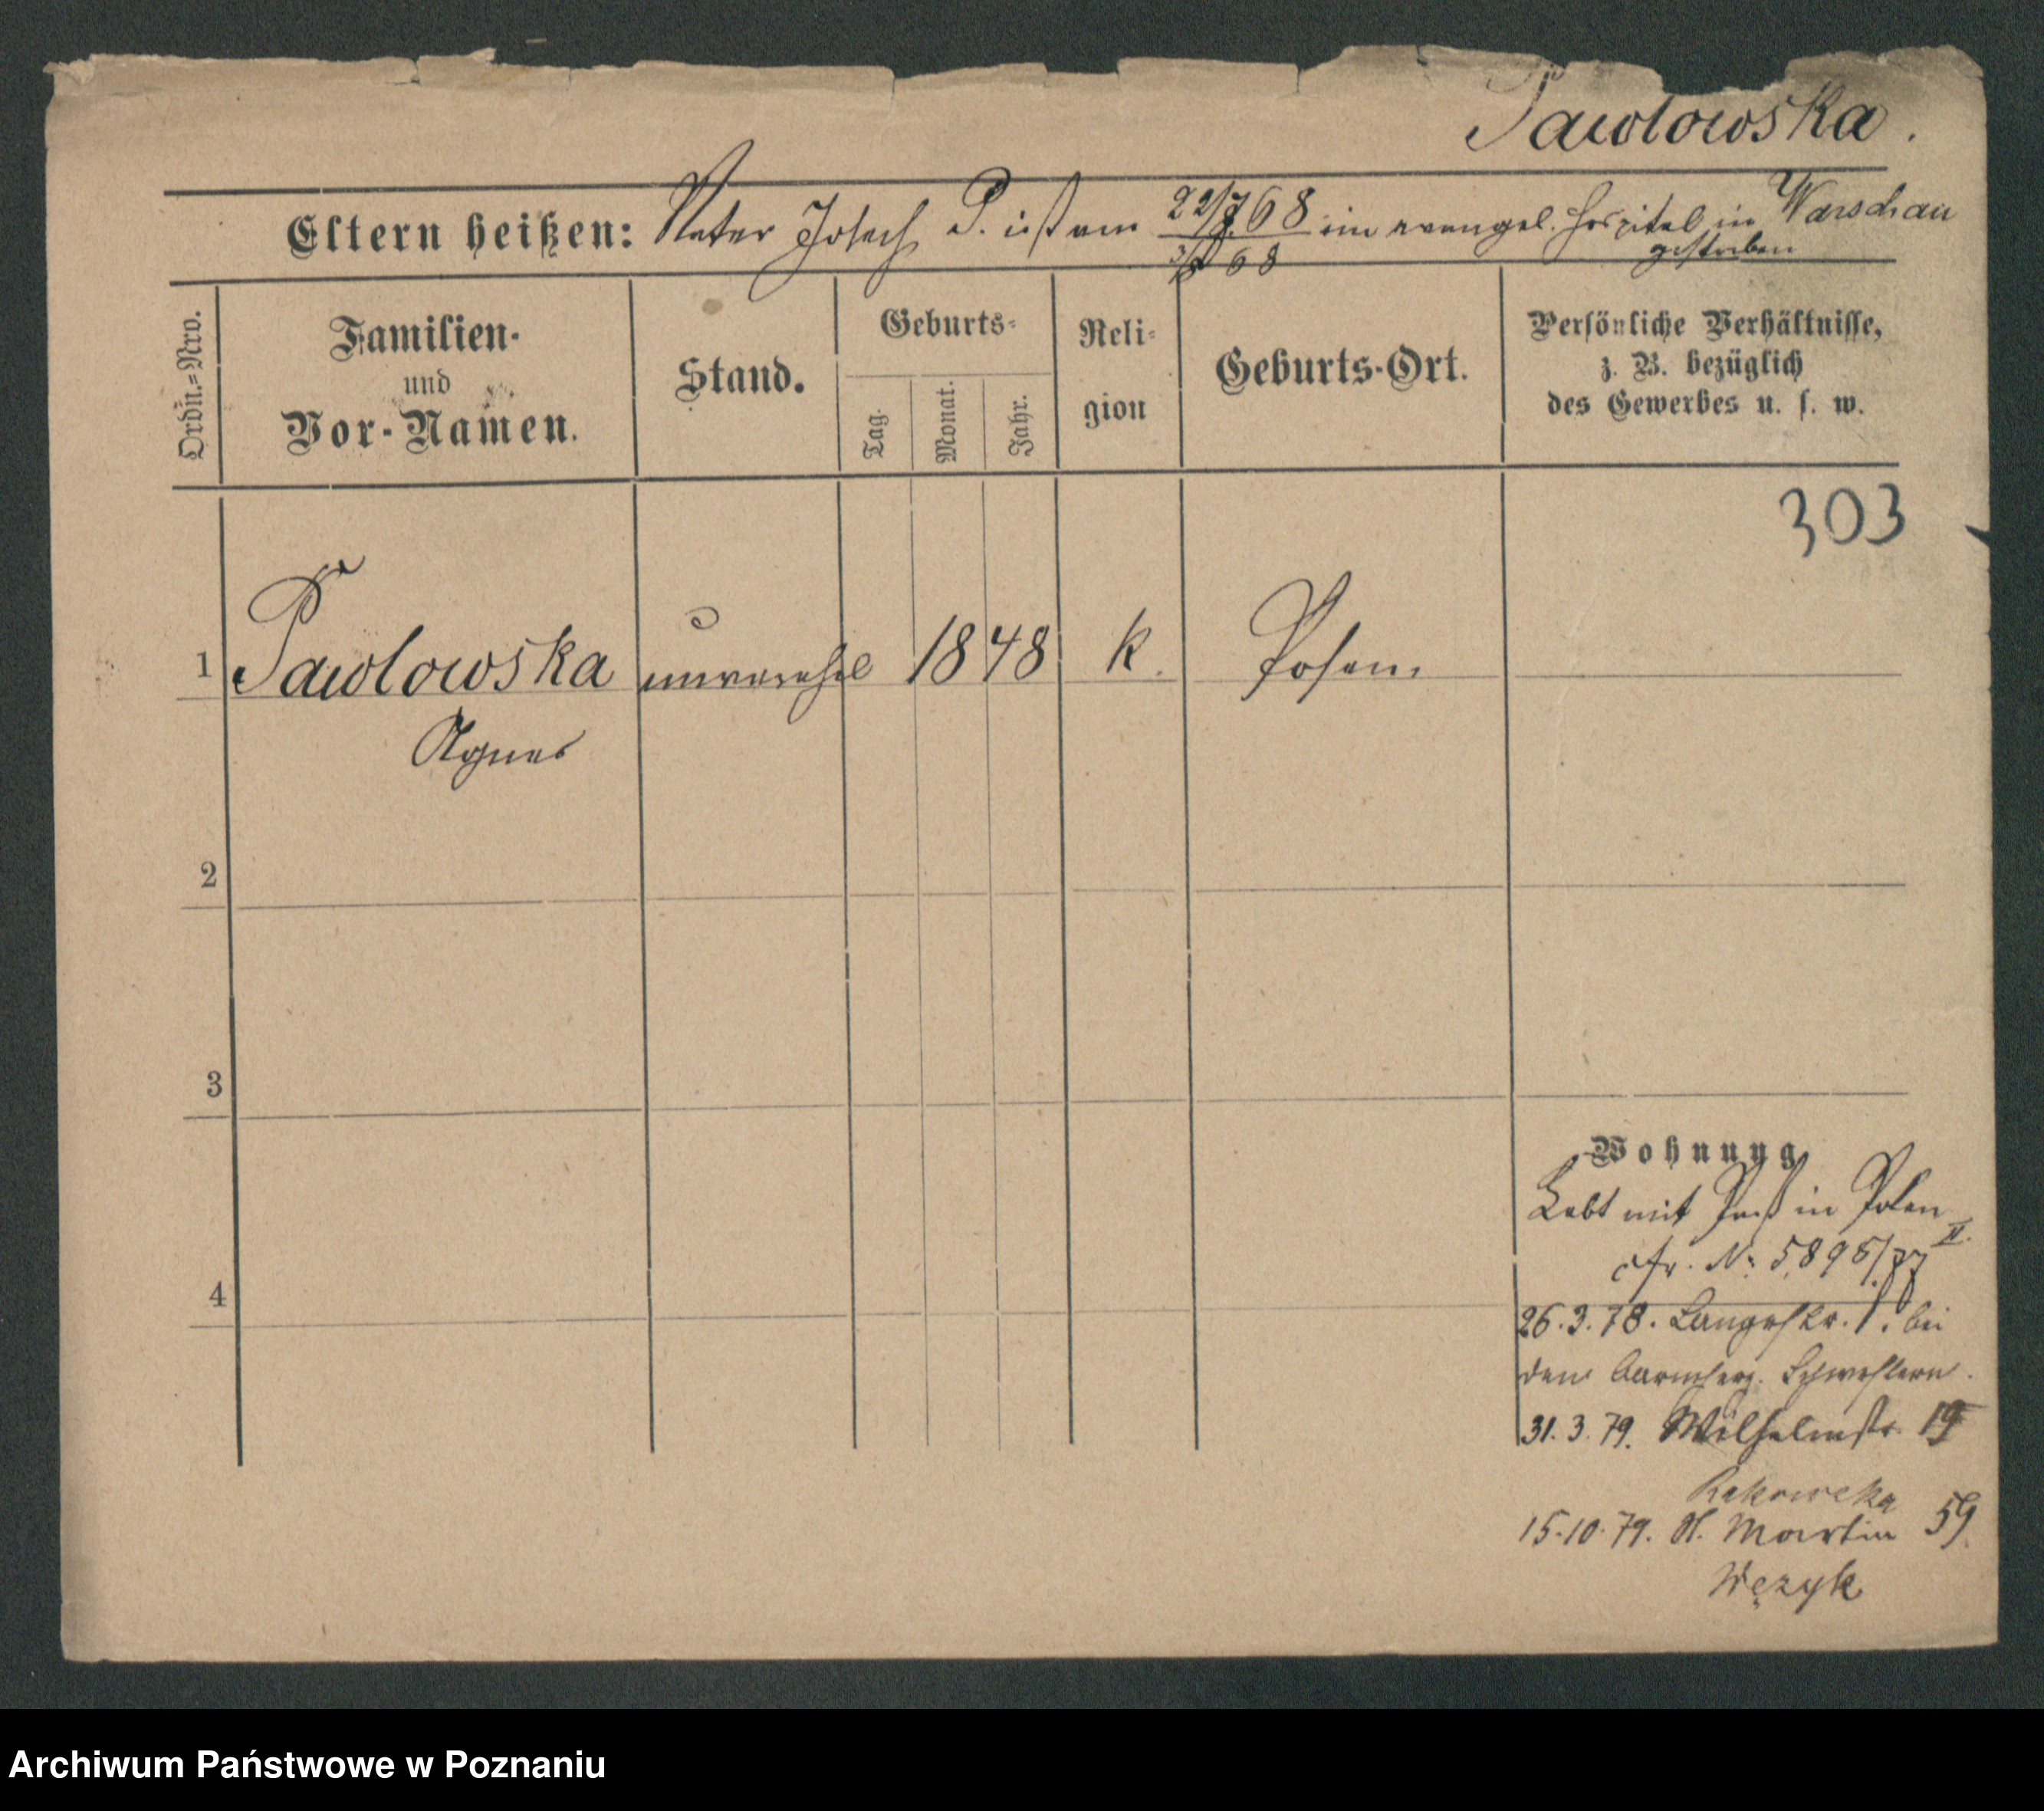 Pawlowska.
Eltern heißen: Vater Joseph P. ist am 22/7.68 im evangel. Hospital in Warschau
3/8 68 gestorben
Ordn.-Nro.
Familien- und Vor-Namen.
Stand.
Geburts-
Tag.
Monat.
Jahr.
Reli-
gion
Geburts-Ort.
Persönliche Verhältnisse,
z. B. bezüglich
des Gewerbes u. s. w.
303
1 Pawlowska unverehel 1848 k. Posen.
Agnes
2
3
4
Wohnung
Lebt mit Paß in Polen
cfr. No: 5895/77 II.
26.3.78. Langestr. 1. bei
den barmherz. Schwestern.
31. 3. 79. Wilhelmstr. 19
15.10.79. St. Martin 59
Węzyk
Archiwum Państwowe w Poznaniu